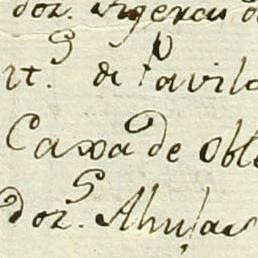 doz.
it. de Pavilo
Caxa de Obl
doz. Ahujas